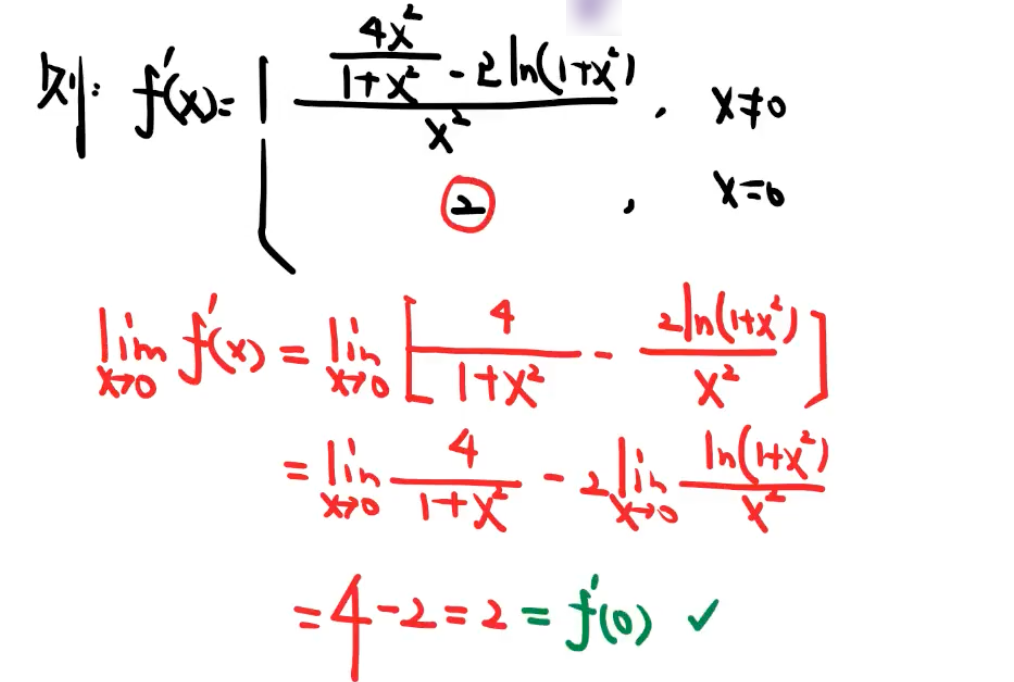 则: f'(x)= { (4x²/(1+x²) - 2ln(1+x²))/x² , x≠0
2 , x=0
lim x→0 f'(x) = lim x→0 [ 4/(1+x²) - 2ln(1+x²)/x² ]
= lim x→0 4/(1+x²) - 2 lim x→0 ln(1+x²)/x²
= 4 - 2 = 2 = f'(0) ✓